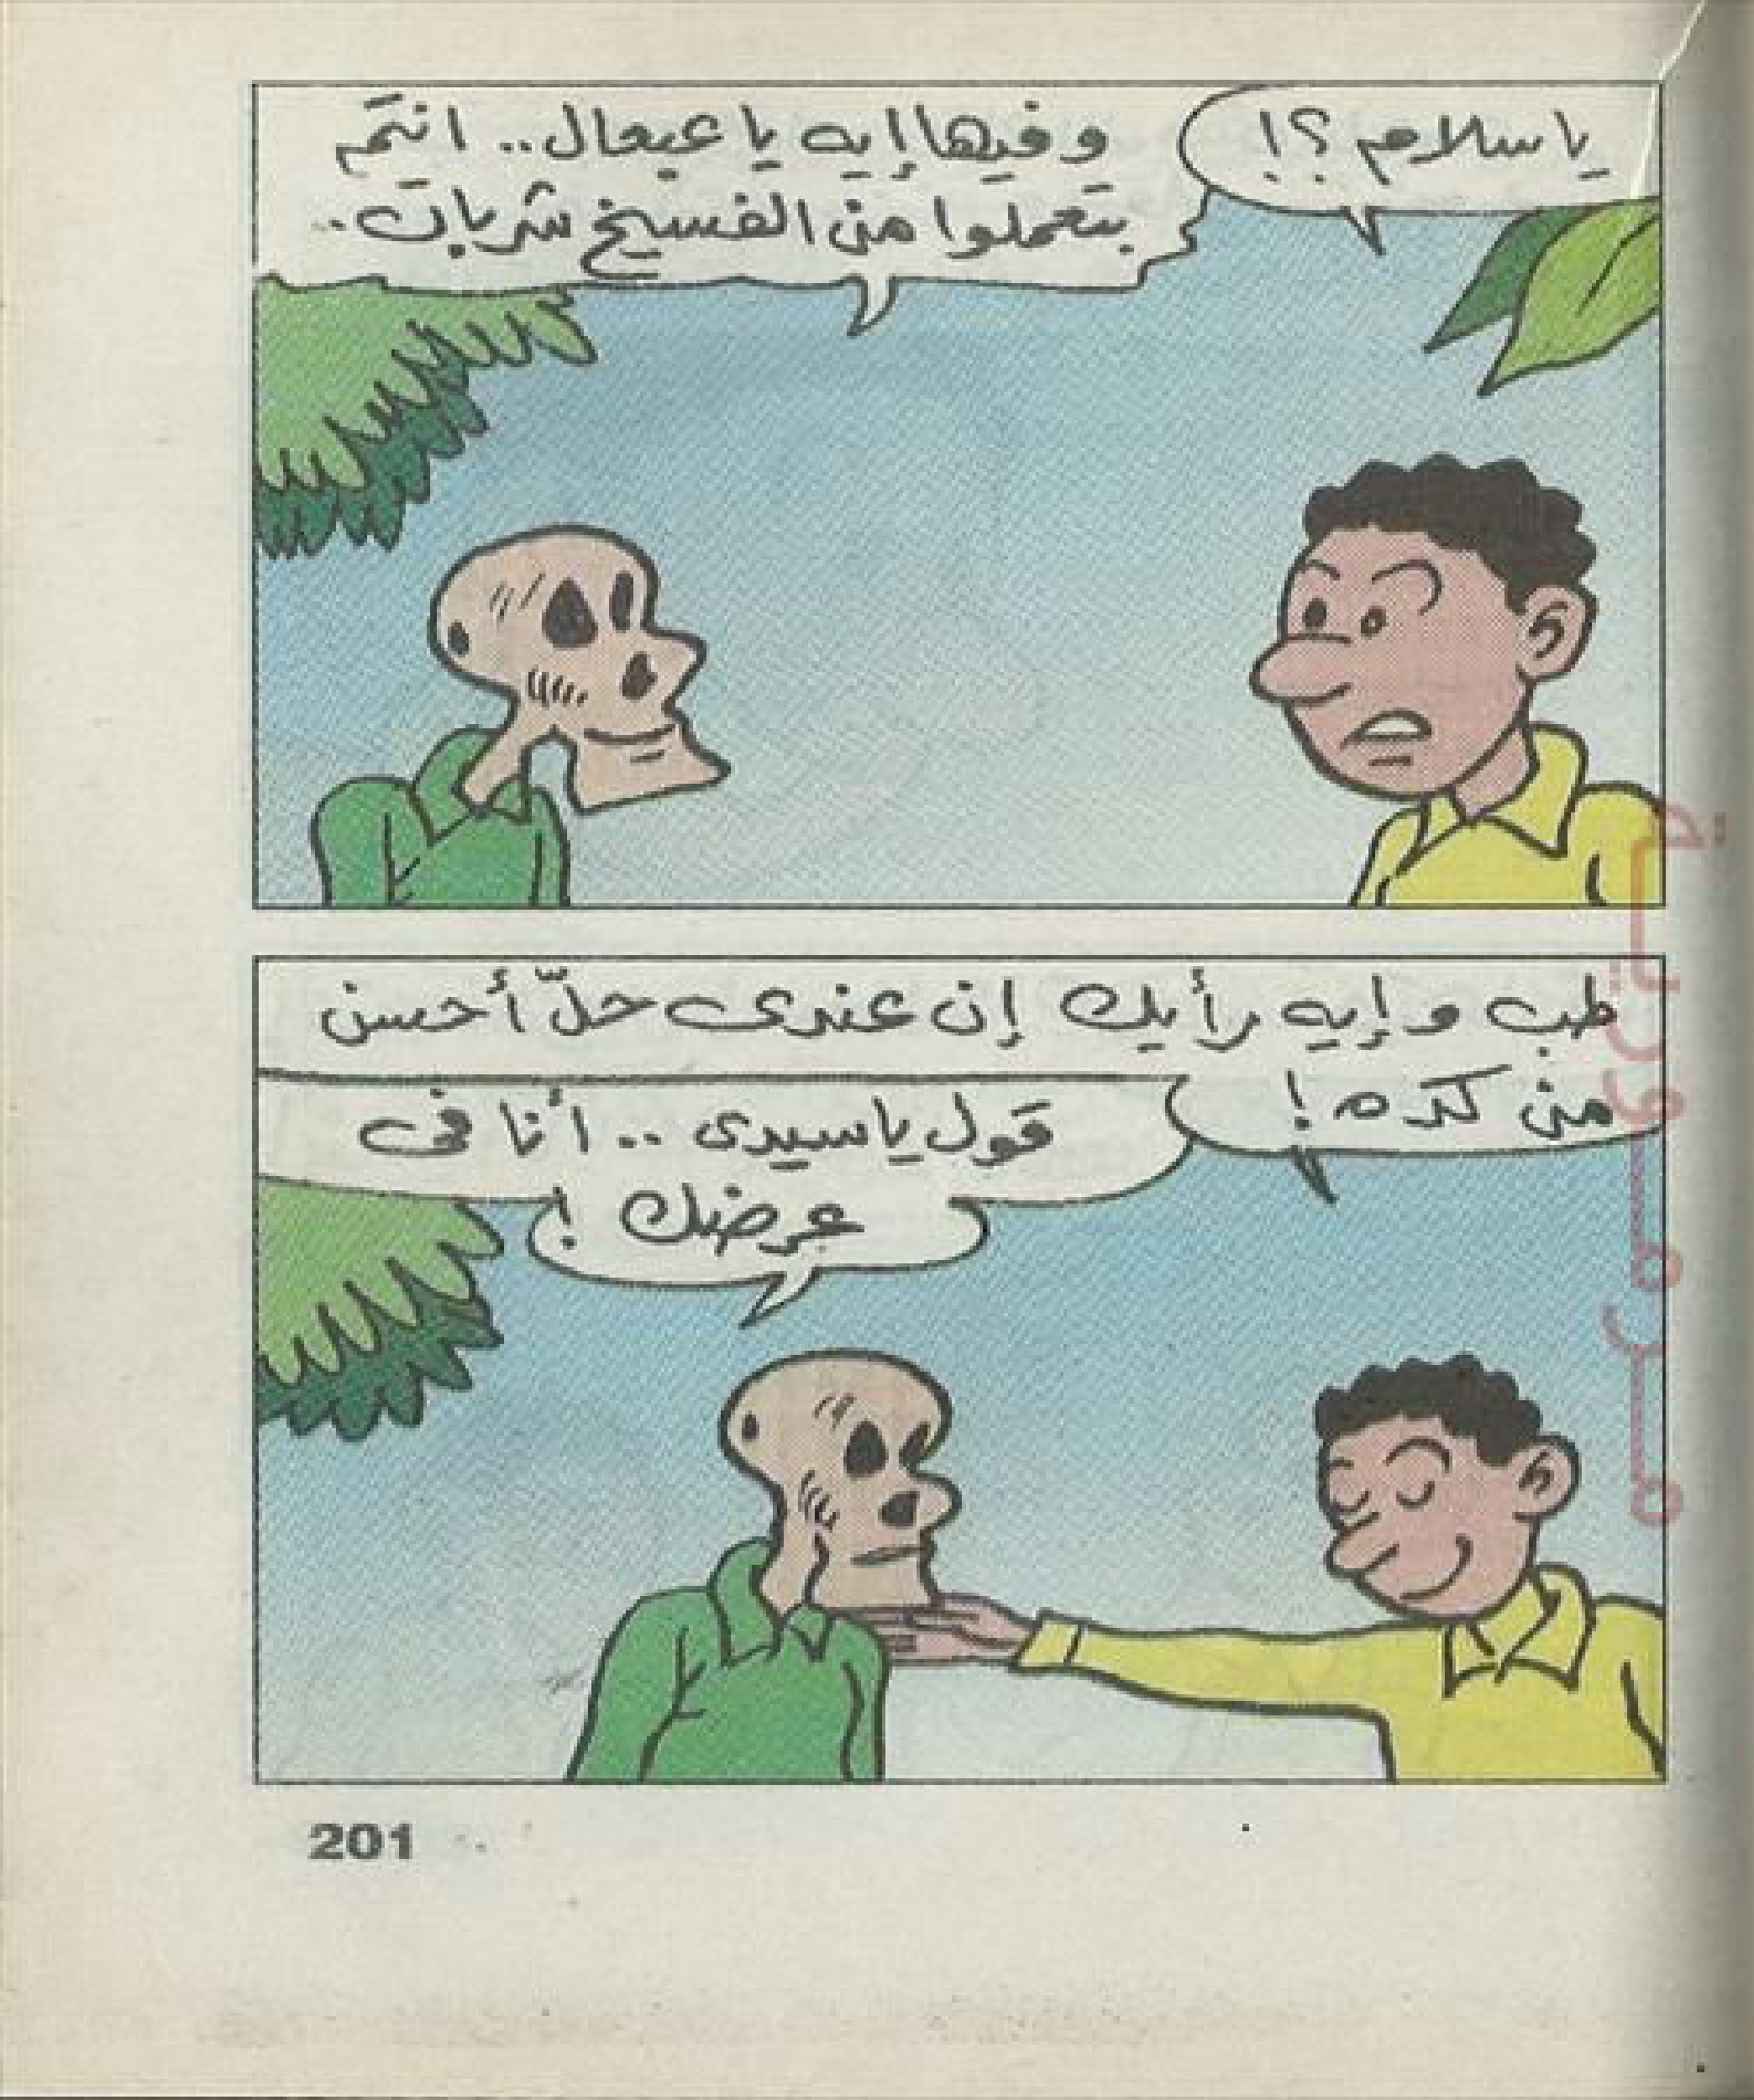 يا سلام ؟!
وفيها إيه يا عبعال .. انتم
بتعملوا من الفسيخ شربات ..
طب وإيه رأيك إن عندى حلّ أحسن
من كده !
قول يا سيدى .. أنا فى
عرضك !
201